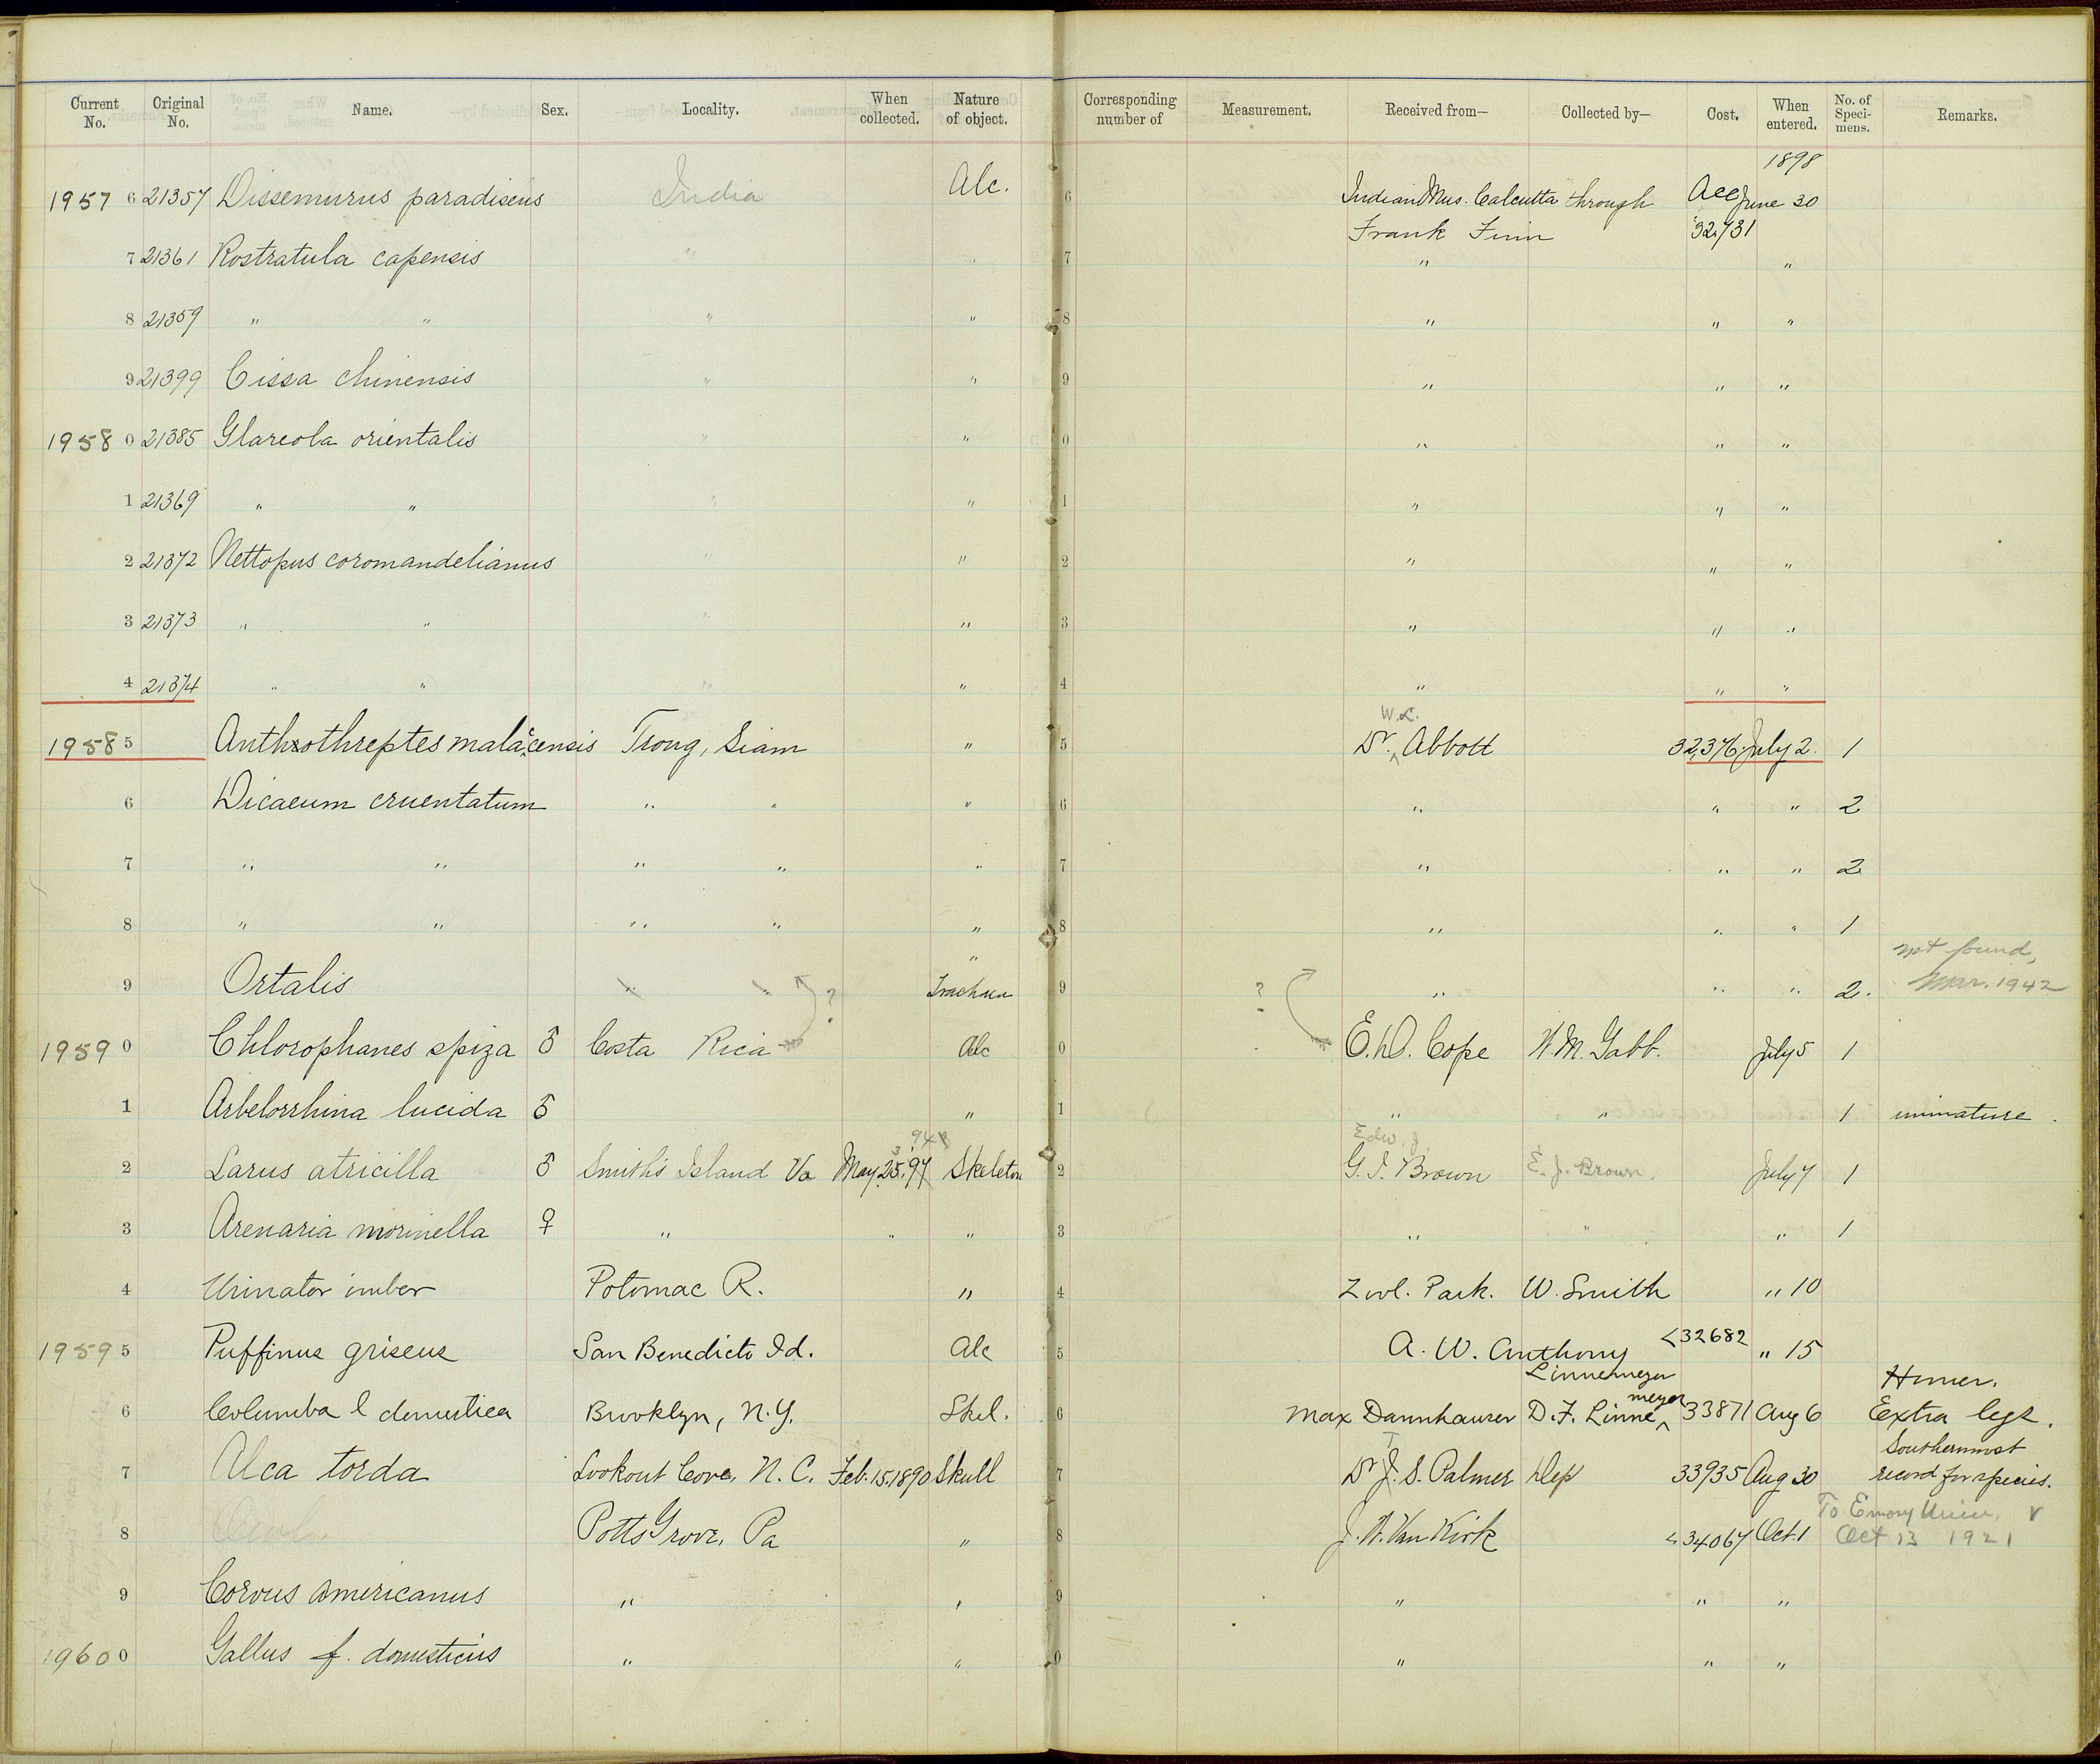 Current No. Original No. Name. Sex. Locality. When collected. Nature of object. Corresponding number of Measurement. Received from— Collected by— Cost. When entered. No. of Specimens. Remarks.
1898
1957 6 21357 Dissemurus paradiseus India Alc. 6 Indian Mus. Calcutta through Acc June 30
Frank Finn 32,731
7 21361 Rostratula capensis " " 7 " "
8 21359 " " " " 8 " " "
9 21399 Cissa chinensis " " 9 " " "
1958 0 21385 Glareola orientalis " " 0 " " "
1 21369 " " " " 1 " " "
2 21372 Nettopus coromandelianus " " 2 " " "
3 21373 " " " " 3 " " "
4 21374 " " " " 4 " " "
W.L.
1958 5 Anthrothreptes malaccensis Trong, Siam " 5 Dr. ^ Abbott 32,376 July 2. 1
6 Dicaeum cruentatum " " " 6 " " " 2
7 " " " " " 7 " " " 2
8 " " " " " 8 " " " 1
" not found,
9 Ortalis " " ? Trachaea 9 ? " " " 2. Mar. 1942
1959 0 Chlorophanes spiza ♂ Costa Rica Alc 0 E. D. Cope W. M. Gabb. July 5 1
1 Arbelorrhina lucida ♂ " 1 " " 1 immature.
Edw. J.
2 Larus atricilla ♂ Smith's Island Va May 25, '97 Skeleton 2 G. I. Brown E. J. Brown. July 7 1
3 Arenaria morinella ♀ " " " 3 " " " 1
4 Urinator imber Potomac R. " 4 Zool. Park. W. Smith " 10
1959 5 Puffinus griseus San Benedicto Id. Alc 5 A. W. Anthony <32682 " 15
Linnemeyer Homer.
meyer
6 Columba l domestica Brooklyn, N.Y. Skel. 6 Max Dannhauser D. F. Linne ^ 33871 Aug 6 Extra legs.
T Southernmost
7 Alca torda Lookout Cove, N. C. Feb. 15, 1890 Skull 7 Dr J. S. Palmer Dep 33935 Aug 30 record for species.
To Emory Univ. v
8 Potts Grove, Pa " 8 J. W. Van Kirk <34067 Oct. 1 Oct 13 1921
9 Corvus americanus " " 9 " " "
1960 0 Gallus f. domesticus " " 0 " " "